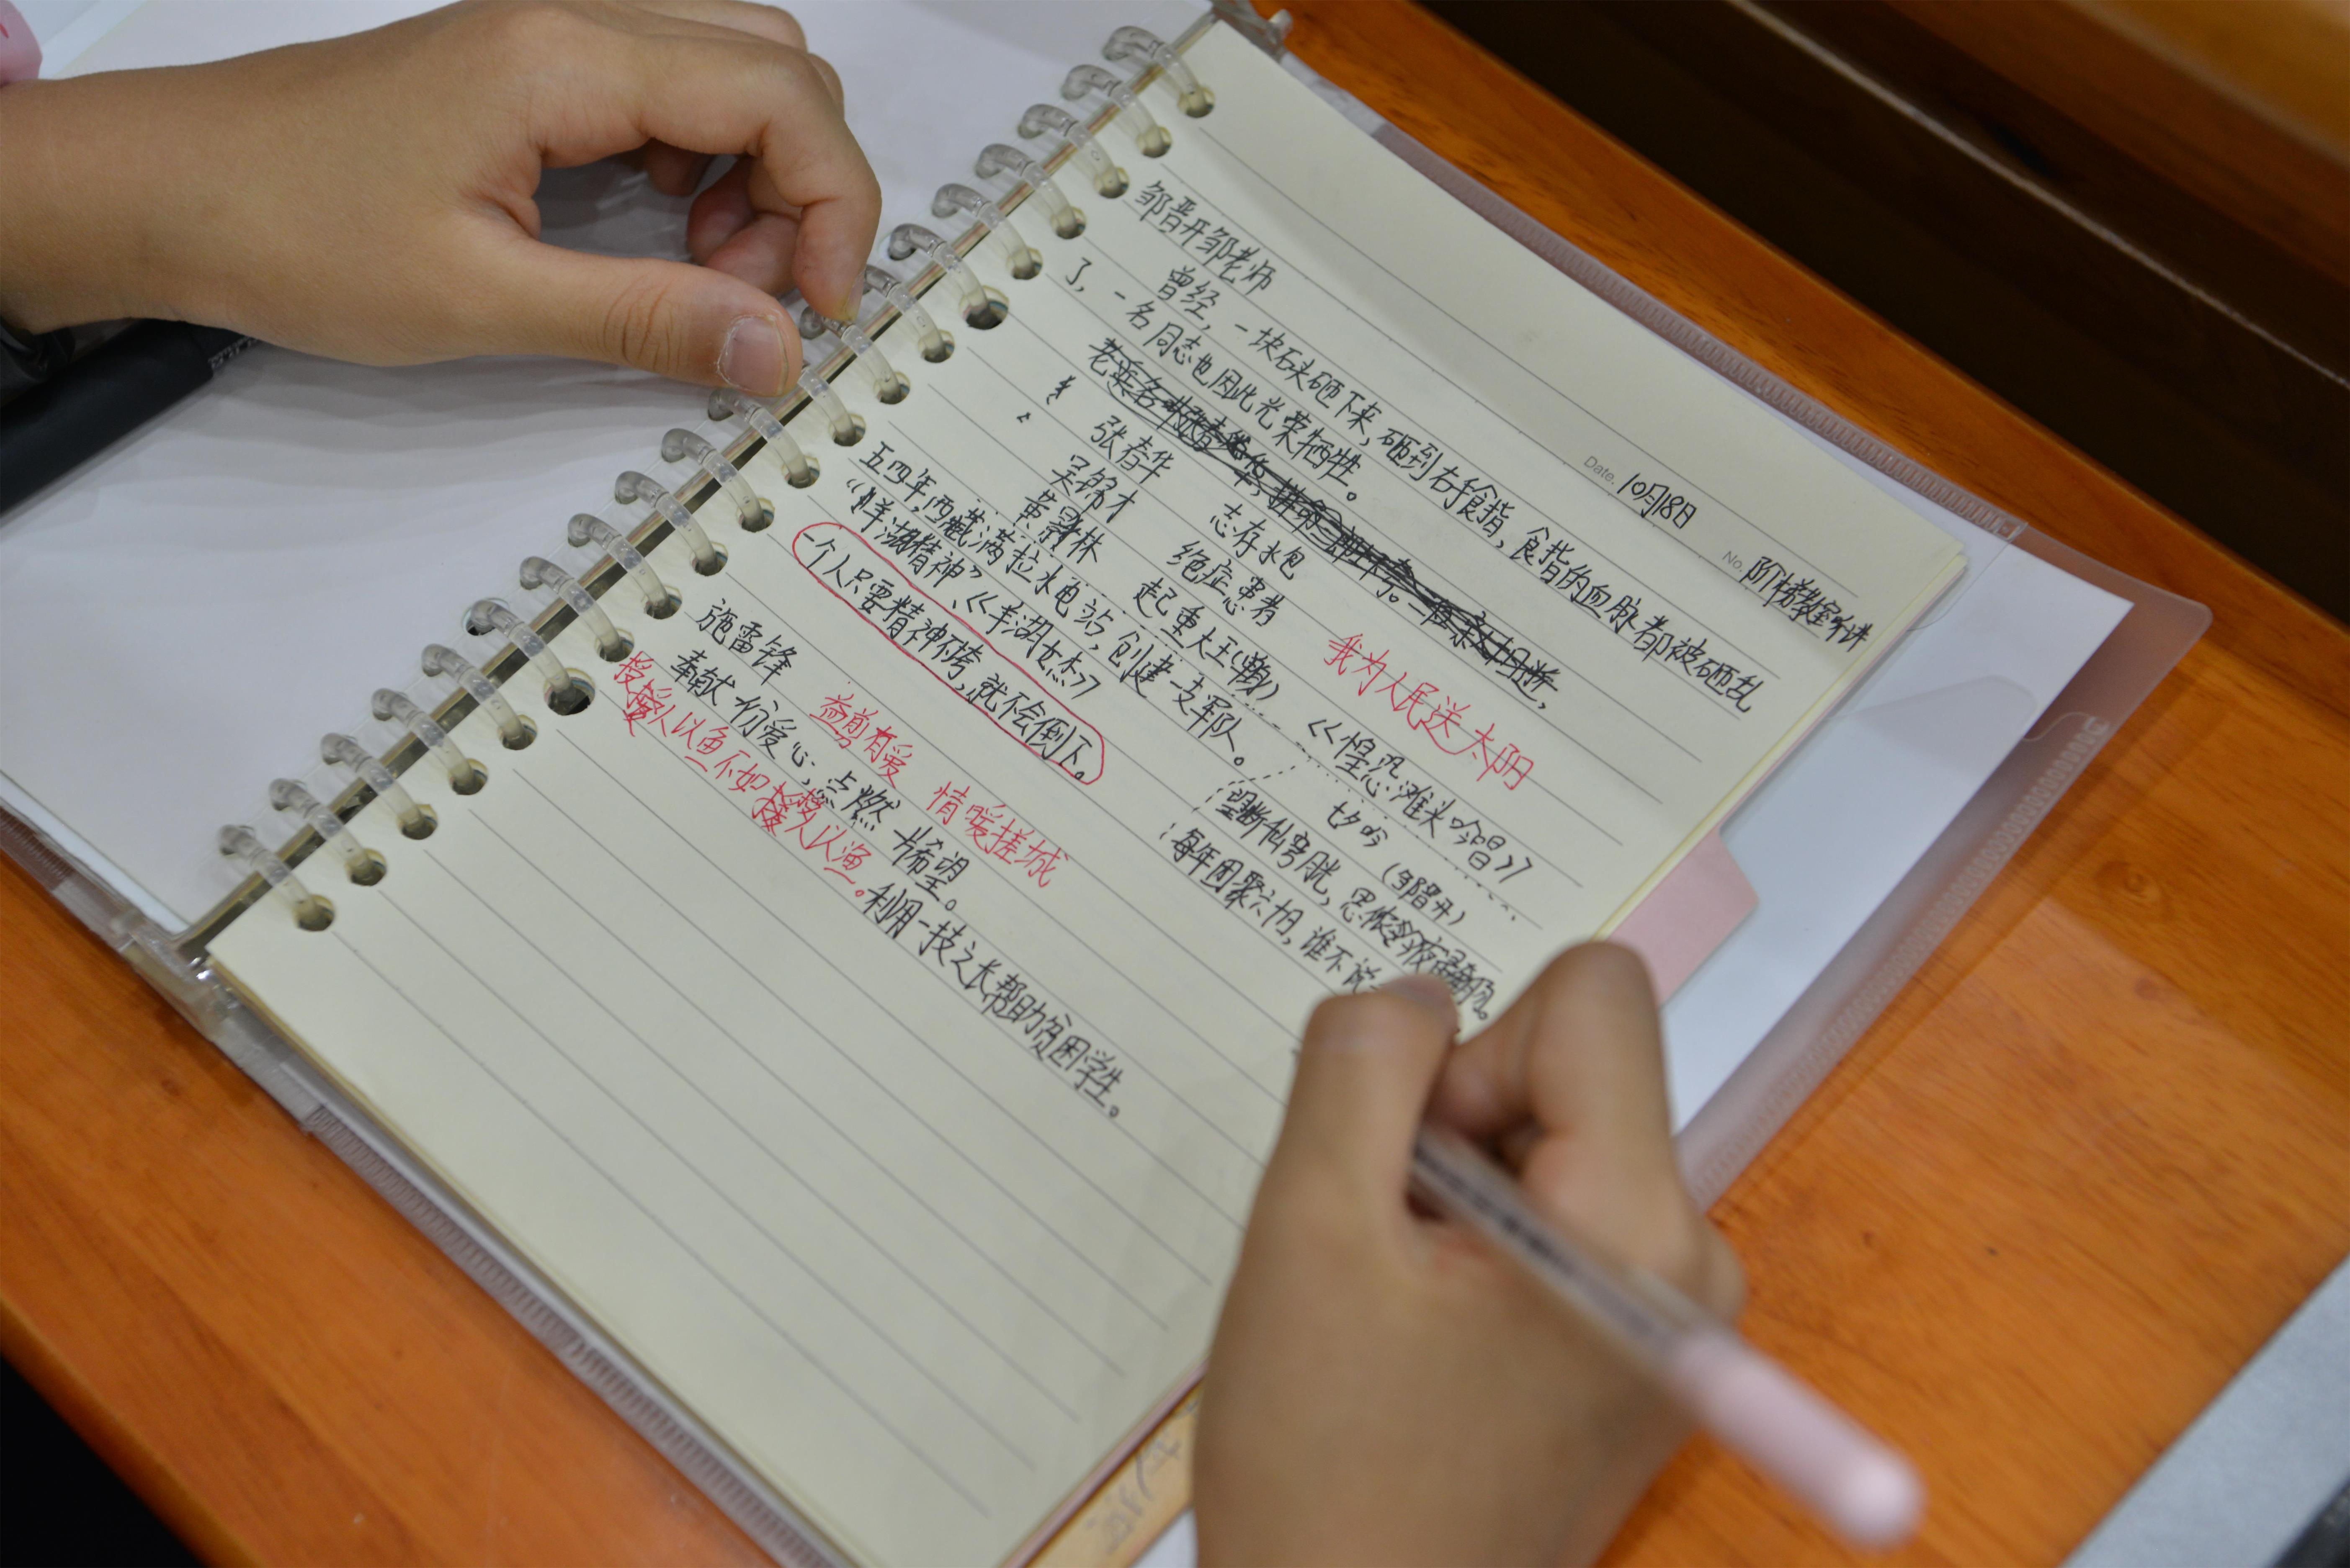 Date. 10月18日 No. 阶梯教室听讲
邹晋开邹老师
曾经，一块石头砸下来，砸到右手食指，食指的血脉都被砸乱
了，一名同志也因此光荣牺牲。
张春华 志存水包 我为人民送太阳
吴锦才 绝症患者
黄影林 起重大王
《惶恐滩头吟》
五四年，西藏满拉水电站，创建一支军队。
七夕吟（邹晋开）
“羊湖精神”、《羊湖女杰》
一个人只要精神不垮，就不会倒下。
每年团聚六十月，谁不说
施雷锋 益剪有爱 情暖搓城
奉献一份爱心，点燃一片希望。
授人以鱼不如授人以渔。利用一技之长帮助贫困学生。